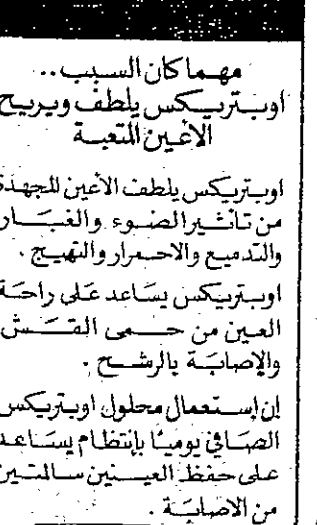 مهما كان السبب..
اوبتريكس يلطف ويريح
الأعين المتعبة
اوبتريكس يلطف الأعين المجهدة
من تأثير الضوء والغبار
والتدميع والاحمرار والتهيج.
اوبتريكس يساعد على راحة
العين من حمى القش
والإصابة بالرشح.
إن إستعمال محلول اوبتريكس
الصافي يوميًا بإنتظام يساعد
على حفظ العينين سالمتين
من الاصابة.